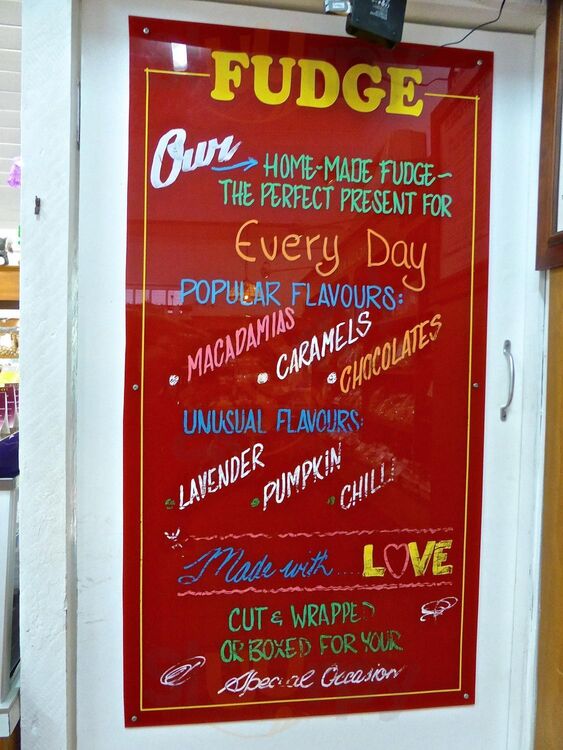 FUDGE
Our → HOME-MADE FUDGE~
THE PERFECT PRESENT FOR
Every Day
POPULAR FLAVOURS:
• MACADAMIAS
• CARAMELS
• CHOCOLATES
UNUSUAL FLAVOURS:
• LAVENDER
• PUMPKIN
• CHILLI
Made with .... LOVE
CUT & WRAPPED
OR BOXED FOR YOUR
Special Occasion